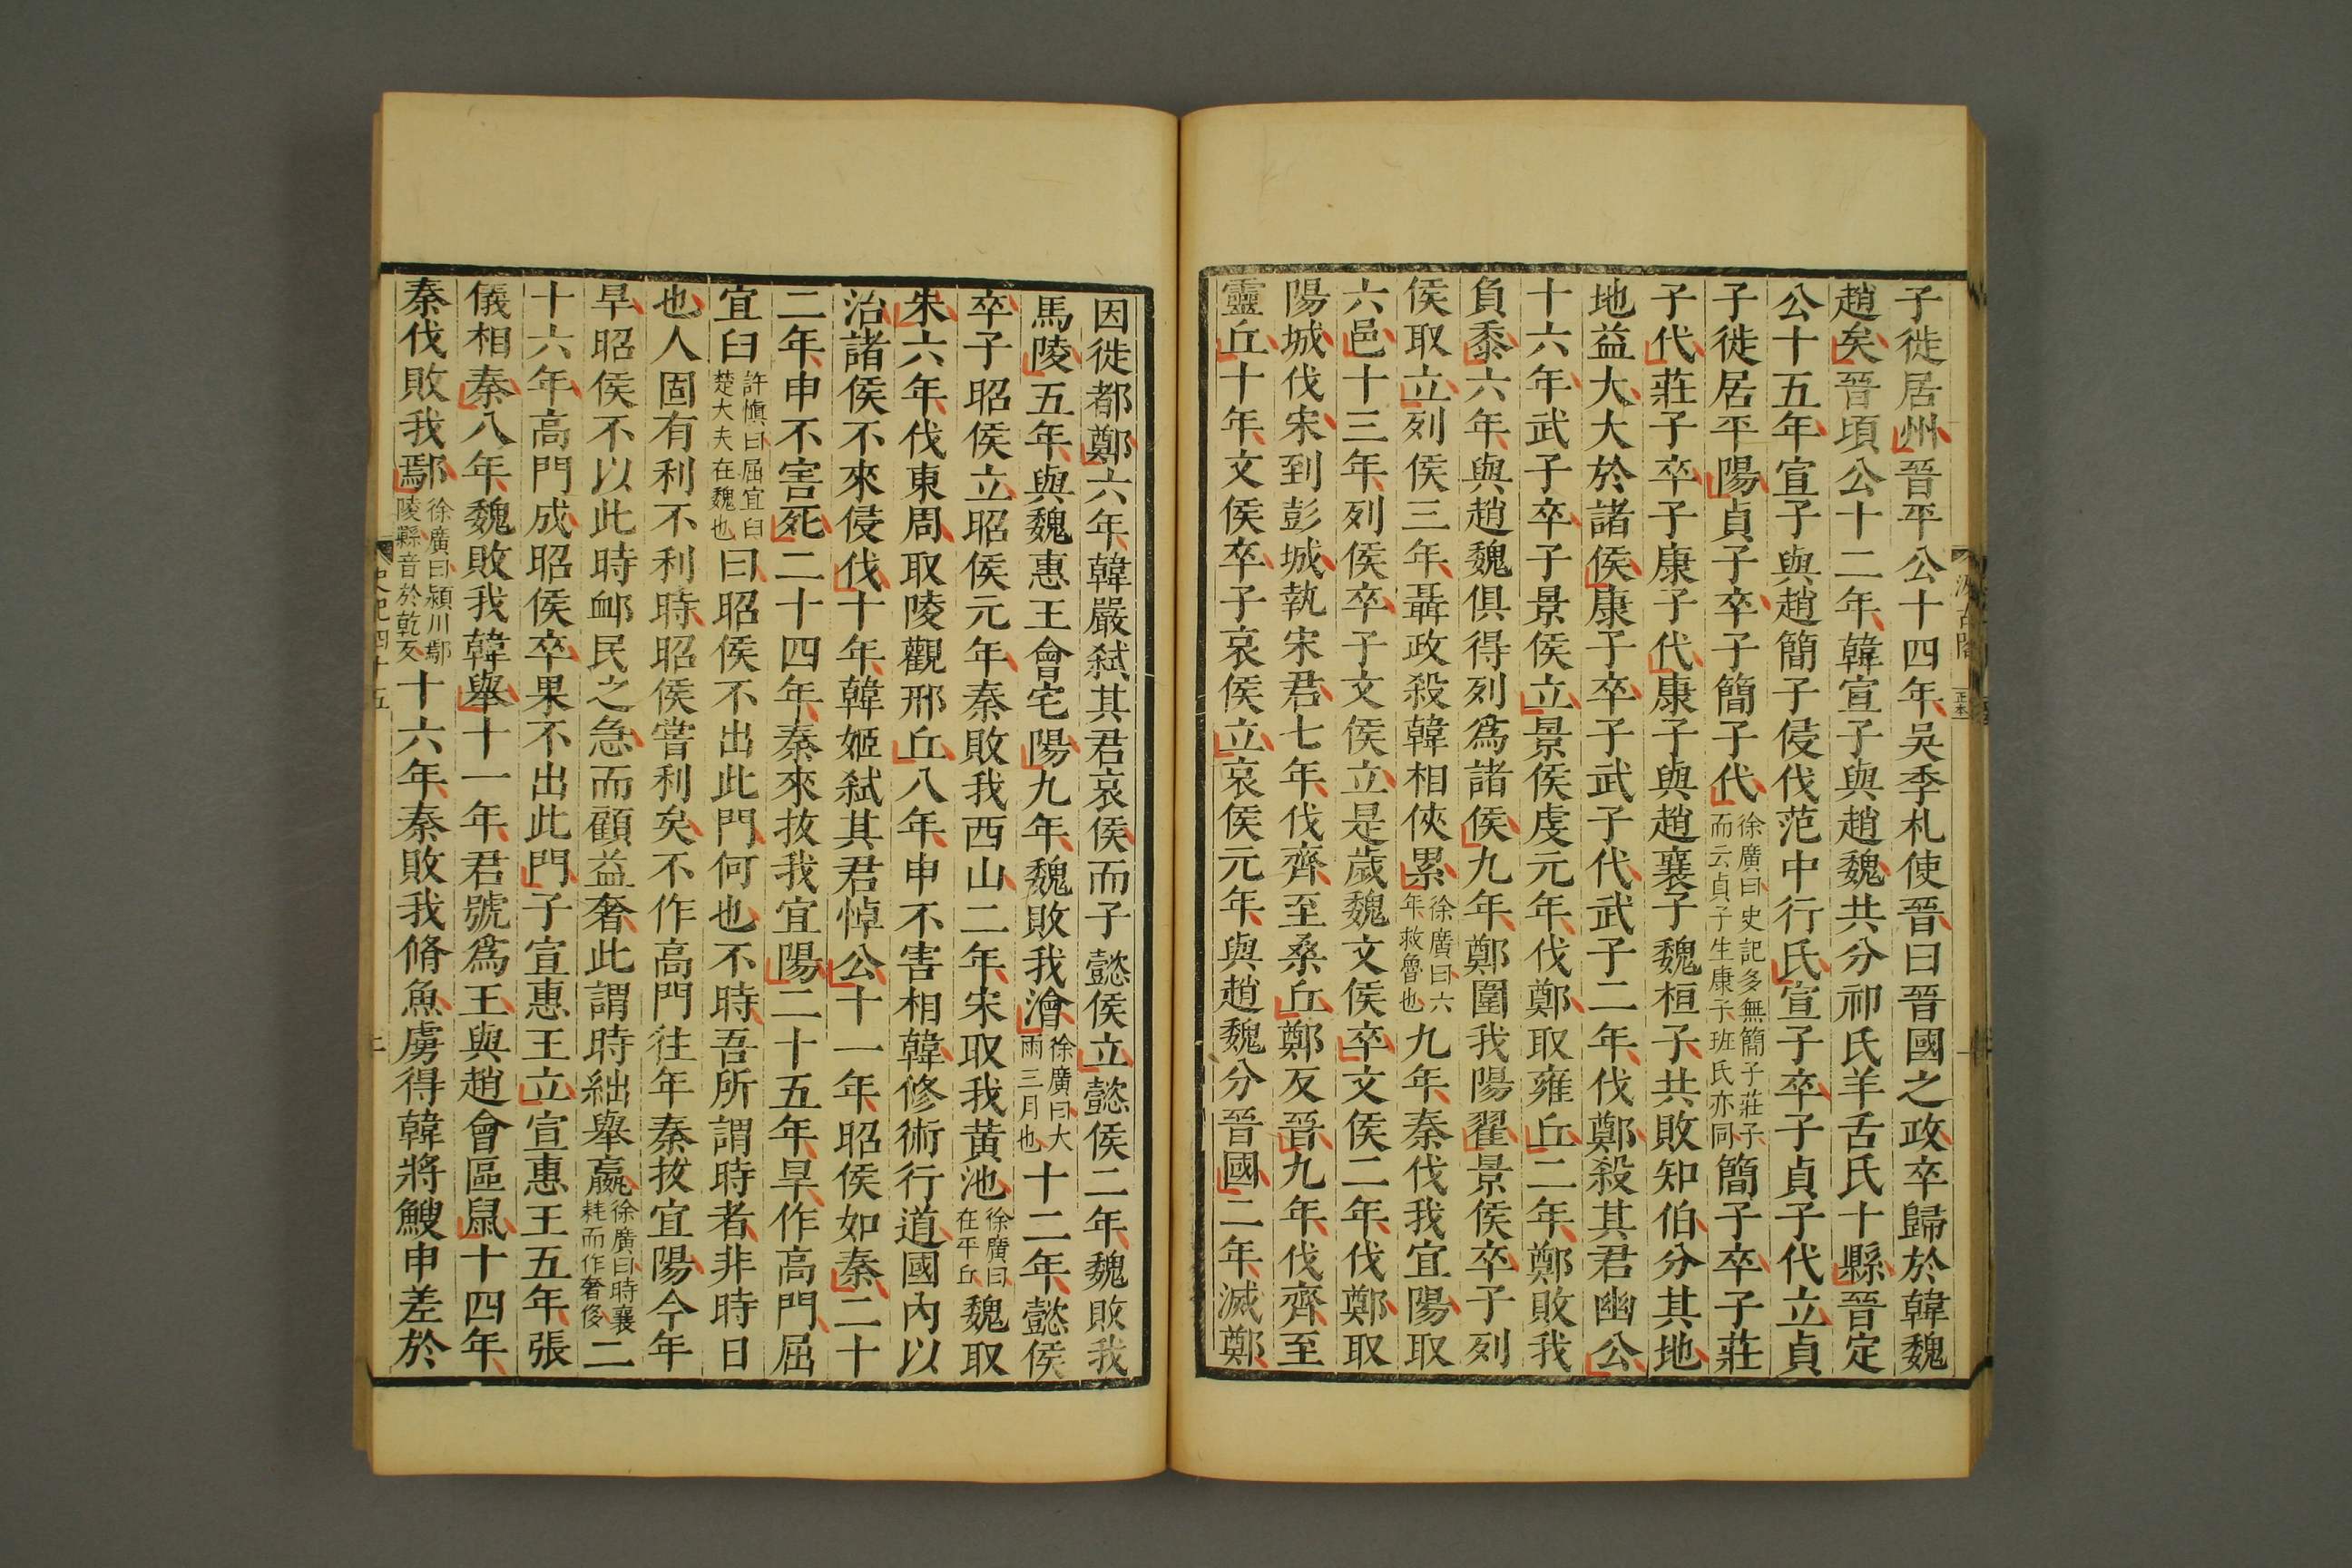 子徙居州晉平公十四年吳季札使晉曰晉國之政卒歸於韓魏
趙矣晉頃公十二年韓宣子與趙魏共分祁氏羊舌氏十縣晉定
公十五年宣子與趙簡子侵伐范中行氏宣子卒子貞子代立貞
子徙居平陽貞子卒子簡子代徐廣曰史記多無簡子莊子而云貞子生康子班氏亦同簡子卒子莊
子代莊子卒子康子代康子與趙襄子魏桓子共敗知伯分其地
地益大大於諸侯康子卒子武子代武子二年伐鄭殺其君幽公
十六年武子卒子景侯立景侯虔元年伐鄭取雍丘二年鄭敗我
負黍六年與趙魏俱得列爲諸侯九年鄭圍我陽翟景侯卒子列
侯取立列侯三年聶政殺韓相俠累徐廣曰六年救魯也九年秦伐我宜陽取
六邑十三年列侯卒子文侯立是歲魏文侯卒文侯二年伐鄭取
陽城伐宋到彭城執宋君七年伐齊至桑丘鄭反晉九年伐齊至
靈丘十年文侯卒子哀侯立哀侯元年與趙魏分晉國二年滅鄭
汲古閣
正本
因徙都鄭六年韓嚴弑其君哀侯而子懿侯立懿侯二年魏敗我
馬陵五年與魏惠王會宅陽九年魏敗我澮徐廣曰大雨三月也十二年懿侯
卒子昭侯立昭侯元年秦敗我西山二年宋取我黄池徐廣曰在平丘魏取
朱六年伐東周取陵觀邢丘八年申不害相韓修術行道國內以
治諸侯不來侵伐十年韓姬弑其君悼公十一年昭侯如秦二十
二年申不害死二十四年秦來拔我宜陽二十五年旱作高門屈
宜臼許愼曰屈宜臼楚大夫在魏也曰昭侯不出此門何也不時吾所謂時者非時日
也人固有利不利時昭侯嘗利矣不作高門往年秦拔宜陽今年
旱昭侯不以此時卹民之急而顧益奢此謂時絀舉嬴徐廣曰時襄耗而作奢侈二
十六年高門成昭侯卒果不出此門子宣惠王立宣惠王五年張
儀相秦八年魏敗我韓舉十一年君號爲王與趙會區鼠十四年
秦伐敗我鄢徐廣曰潁川鄢陵縣音於乾反十六年秦敗我脩魚虜得韓將鰒申差於
史記四十五